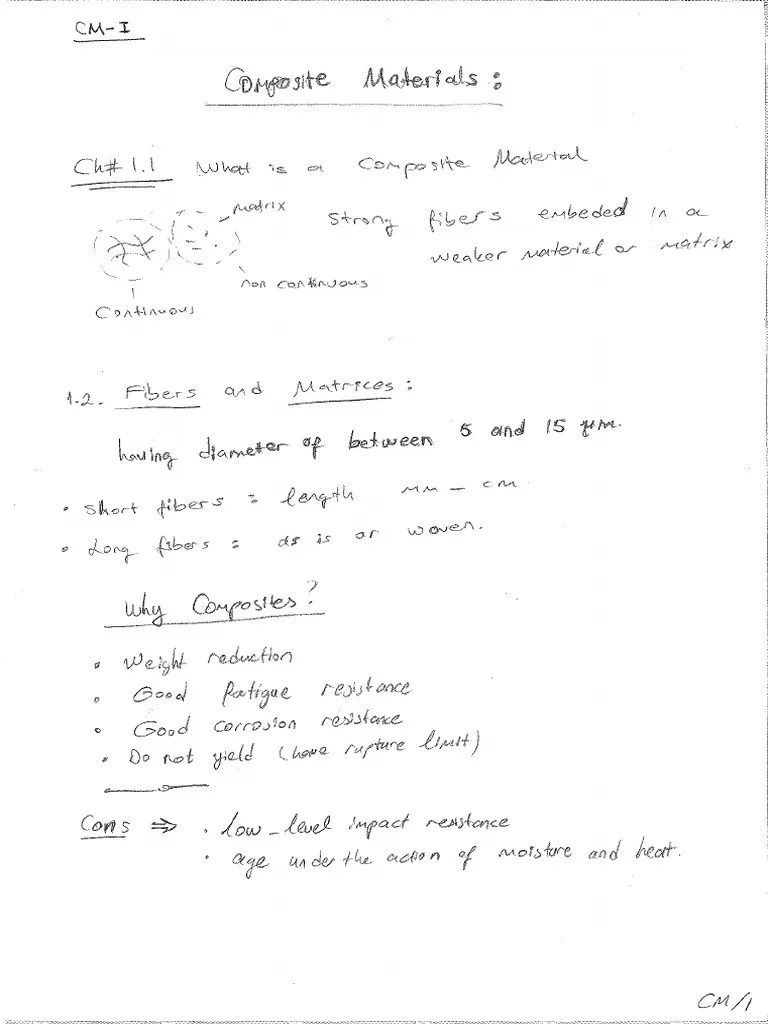 CM-I
Composite Materials:
Ch# 1.1 What is a Composite Material
matrix
Strong fibers embeded in a
weaker material or matrix
non continuous
Continuous
1.2. Fibers and Matrices:
having diameter of between 5 and 15 μm.
• Short fibers = length mm - cm
• Long fibers = as is or woven.
Why Composites?
• Weight reduction
• Good fatigue resistance
• Good corrosion resistance
• Do not yield (have rupture limit)
Cons ⇒ • low-level impact resistance
• age under the action of moisture and heat.
CM/1